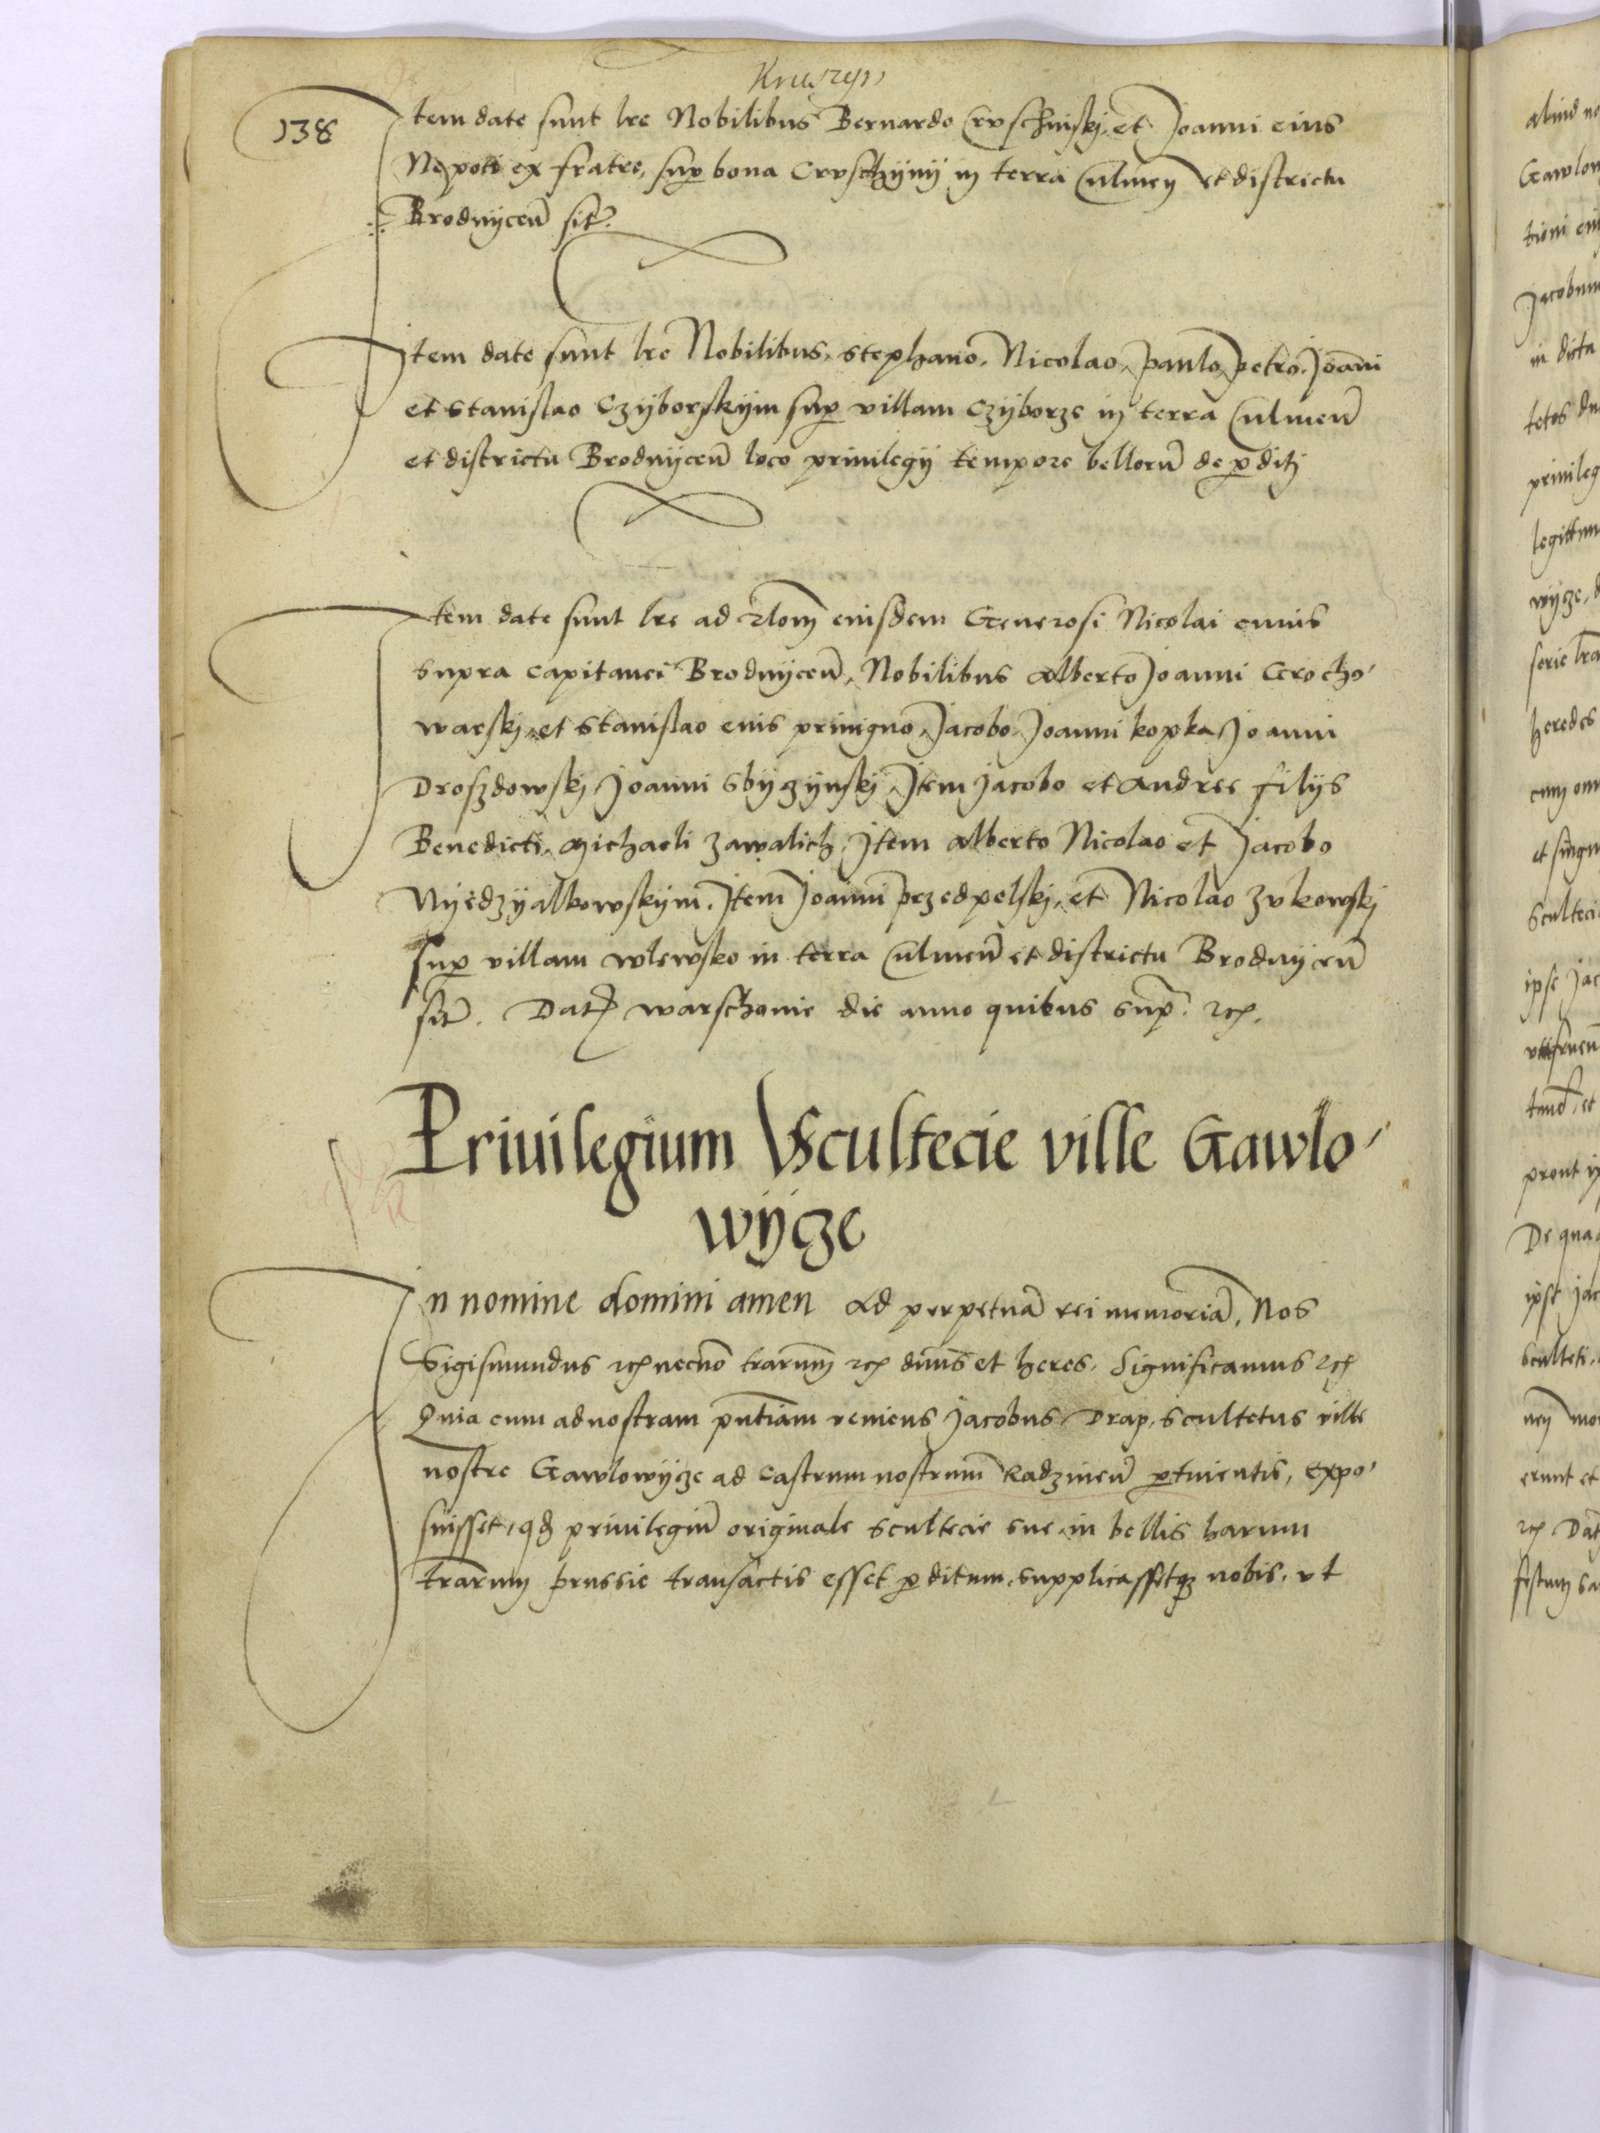 138
Item date sunt lre Nobilibus Bernardo Crvschinskj et Joanni eius
Nepoti ex fratre, sup bona Crvschyny in terra Culmen et districtu
Brodnyceñ sit̃.
Item date sunt lre Nobilibus, Stephano, Nicolao, Paulo, Petro, Joãni
et Stanislao Czyborskym sup villam Czyborze in terra Culmeñ
et districtu Brodnyceñ loco privilegÿ tempore bellorũ deperditj
Item date sunt lre ad rlom̃ eiusdem Generosi Nicolai cuius
supra Capitanei Brodnyceñ, Nobilibus Alberto Joanni Grocho,
warskj, et Stanislao eius privigno, Jacobo, Joanni kopka, Joanni
Droszdowskj Joanni Sbyczynskj, Item Jacobo et Andree filÿs
Benedicti, Michaeli Zawalich, Item Alberto Nicolao et Jacobo
Nyedzyalkowskym, Item Joanni Przedpelskj, et Nicolao Zvkowskj
sup villam Wlewsko in terra Culmeñ et districtu Brodnyceñ
sit̃. Dat̃ Warschovie die anno quibus sup̃. etc.
Privilegium Scultecie ville Gawlo,
wycze
In nomine domini amen Ad perpetuã rei memoriã, Nos
Sigismundus etc necnõ trarum̃ etc dñus et heres. Significamus etc
Quia cum ad nostram pñtiam veniens Jacobus Drap, scultetus ville
nostre Gawlowycze ad castrum nostrum Radzineñ ptinentis, expo,
suisset, qd privilegiũ originale scultecie sue in bellis harum
trarum Prussie transactis esset pditum, supplicassetq nobis, vt